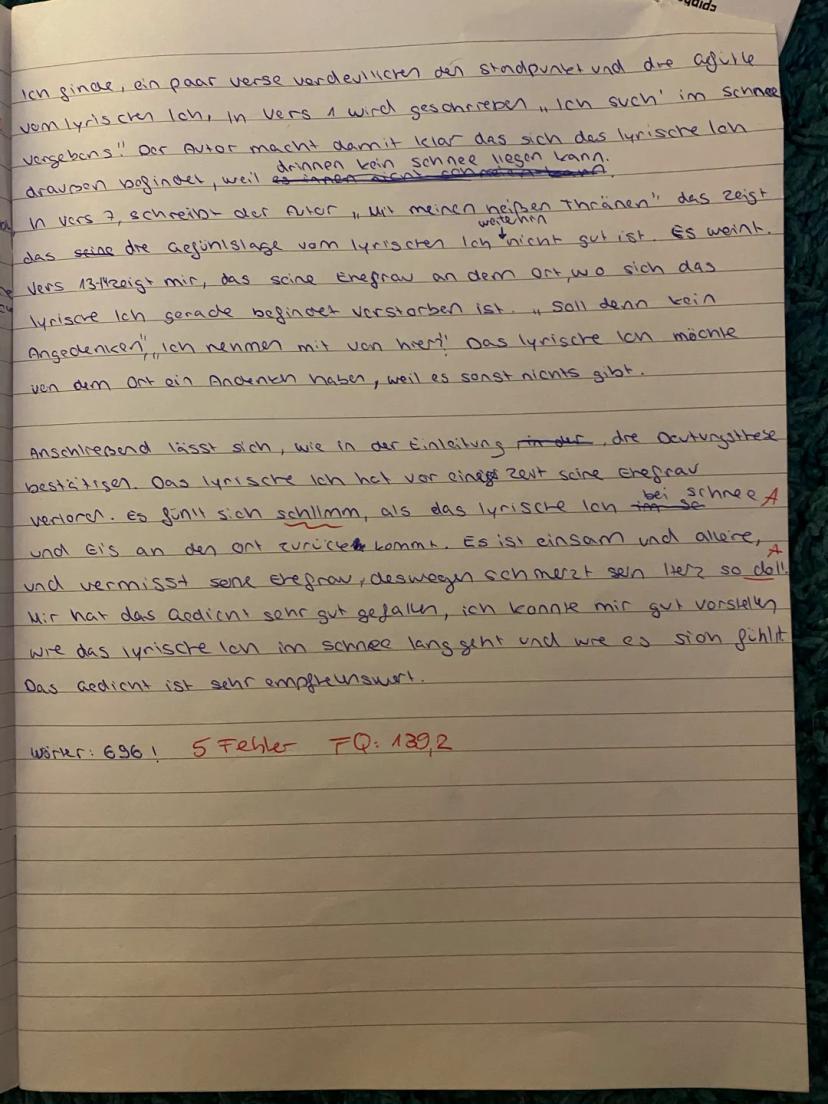 Ich finde, ein paar verse verdeutlichen den stadpunkt und die gfülle
vom lyrischen Ich, In Vers 1 wird geschrieben „Ich such' im Schnee
vergebens". Der Autor macht damit klar das sich das lyrische Ich
draußen befindet, weil drinnen kein schnee liegen kann.
In Vers 7, schreibt der Autor „Mit meinen heißen Thränen" das zeigt
das seine die Gefühlslage vom lyrischen Ich weiterhin nicht gut ist. Es weint.
Vers 13-14 zeigt mir, das seine Ehefrau an dem Ort, wo sich das
lyrische Ich gerade befindet verstorben ist. „Soll denn kein
Angedenken", „Ich nehmen mit von hier?" Das lyrische Ich möchte
von dem Ort ein Andenken haben, weil es sonst nichts gibt.
Anschließend lässt sich, wie in der Einleitung in der, die Deutungsthese
bestätigen. Das lyrische Ich hat vor einiger Zeit seine Ehefrau
verloren. Es fühlt sich schlimm, als das lyrische Ich bei schnee A
und Eis an den Ort zurück kommt. Es ist einsam und alleine,
und vermisst seine Ehefrau, deswegen schmerzt sein Herz so doll. A
Mir hat das Gedicht sehr gut gefallen, ich konnte mir gut vorstellen
wie das lyrische Ich im schnee lang geht und wie es sich fühlt
Das Gedicht ist sehr empfehlenswert.
Wörter: 696! 5 Fehler FQ: 139,2